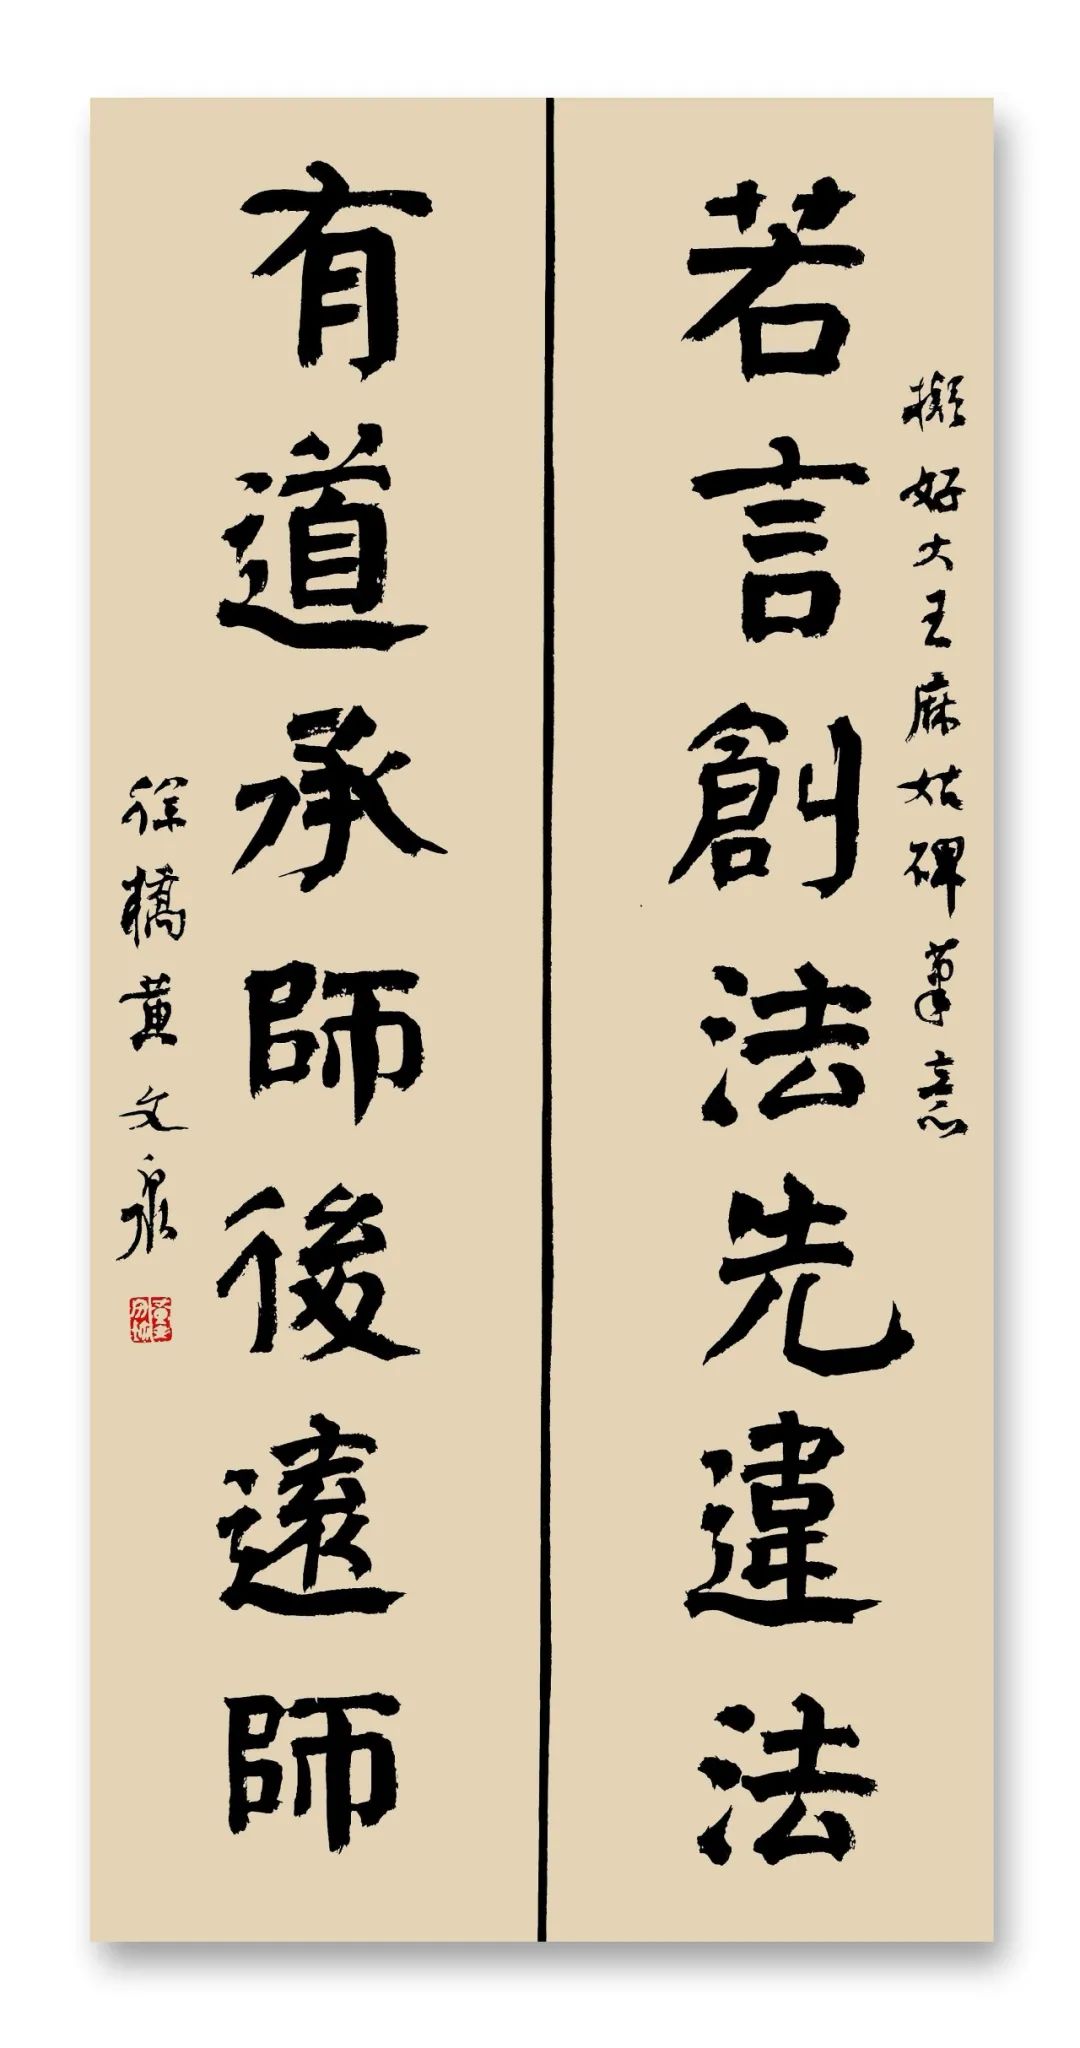 若言創法先違法
擬好大王麻姑碑筆意
有道承師後遠師
徐橋黄文泉